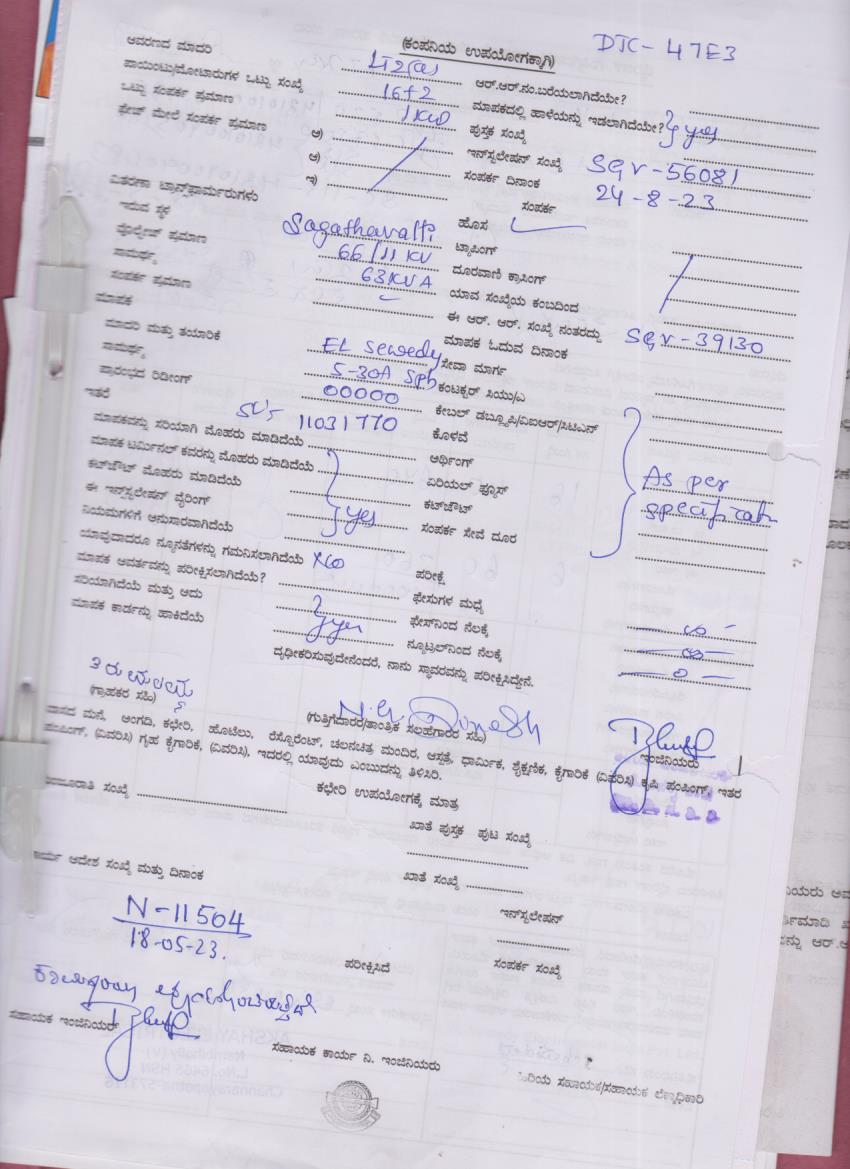 (ಕಂಪನಿಯ ಉಪಯೋಗಕ್ಕಾಗಿ) DTC- 47E3
ಆವರಣದ ಮಾದರಿ LT2(a) ಆರ್.ಆರ್.ನಂ.ಬರೆಯಲಾಗಿದೆಯೇ?
ಪಾಯಿಂಟ್ಸು/ಮೋಟಾರುಗಳ ಒಟ್ಟು ಸಂಖ್ಯೆ 16+2 ಮಾಪಕದಲ್ಲಿ ಹಾಳೆಯನ್ನು ಇಡಲಾಗಿದೆಯೇ? } yes
ಒಟ್ಟು ಸಂಪರ್ಕ ಪ್ರಮಾಣ 1KW ಪುಸ್ತಕ ಸಂಖ್ಯೆ
ಫೇಜ್ ಮೇಲೆ ಸಂಪರ್ಕ ಪ್ರಮಾಣ ಅ) ಇನ್‌ಸ್ಟಲೇಷನ್ ಸಂಖ್ಯೆ SGV-56081
ಆ) ಸಂಪರ್ಕ ದಿನಾಂಕ 24-8-23
ಇ) ಸಂಪರ್ಕ
ವಿತರಣಾ ಟ್ರಾನ್ಸ್‌ಫಾರ್ಮರುಗಳು ಹೊಸ
ಇರುವ ಸ್ಥಳ Sagathavalli ಟ್ಯಾಪಿಂಗ್
ವೋಲ್ಟೇಜ್ ಪ್ರಮಾಣ 66/11 KV ದೂರವಾಣಿ ಕ್ರಾಸಿಂಗ್
ಸಾಮರ್ಥ್ಯ 63KVA ಯಾವ ಸಂಖ್ಯೆಯ ಕಂಬದಿಂದ
ಸಂಪರ್ಕ ಪ್ರಮಾಣ ಈ ಆರ್. ಆರ್. ಸಂಖ್ಯೆ ನಂತರದ್ದು SGV-39130
ಮಾಪಕ ಮಾಪಕ ಓದುವ ದಿನಾಂಕ
ಮಾದರಿ ಮತ್ತು ತಯಾರಿಕೆ EL Sewedy ಸೇವಾ ಮಾರ್ಗ
ಸಾಮರ್ಥ್ಯ 5-30A Sph ಕಂಟಕ್ಟರ್ ಸಿಯು/ಎ
ಪ್ರಾರಂಭದ ರಿಡೀಂಗ್ 00000 ಕೇಬಲ್ ಡಬ್ಲ್ಯೂಪಿ/ವಿಐಆರ್/ಸಿಟಿಎನ್
ಇತರೆ 11031770 ಕೊಳವೆ
ಮಾಪಕವನ್ನು ಸರಿಯಾಗಿ ಮೊಹರು ಮಾಡಿದೆಯೆ ಆರ್ಥಿಂಗ್
ಮಾಪಕ ಟರ್ಮಿನಲ್ ಕವರನ್ನು ಮೊಹರು ಮಾಡಿದೆಯೆ ಏರಿಯಲ್ ಫ್ಯೂಸ್ As per
ಕಟ್‌ಔಟ್ ಮೊಹರು ಮಾಡಿದೆಯೆ ಕಟ್‌ಔಟ್
ಈ ಇನ್‌ಸ್ಟಲೇಷನ್ ವೈರಿಂಗ್ } yes ಸಂಪರ್ಕ ಸೇವೆ ದೂರ
ನಿಯಮಗಳಿಗೆ ಅನುಸಾರವಾಗಿದೆಯೆ
ಯಾವುದಾದರೂ ನ್ಯೂನತೆಗಳನ್ನು ಗಮನಿಸಲಾಗಿದೆಯೆ No ಪರೀಕ್ಷೆ
ಮಾಪಕ ಆವರ್ತವನ್ನು ಪರೀಕ್ಷಿಸಲಾಗಿದೆಯೆ? ಫೇಸುಗಳ ಮಧ್ಯೆ
ಸರಿಯಾಗಿದೆಯೆ ಮತ್ತು ಅದು ಫೇಸ್‌ನಿಂದ ನೆಲಕ್ಕೆ
ಮಾಪಕ ಕಾರ್ಡನ್ನು ಹಾಕಿದೆಯೆ } yes ನ್ಯೂಟ್ರಲ್‌ನಿಂದ ನೆಲಕ್ಕೆ
ದೃಢೀಕರಿಸುವುದೇನೆಂದರೆ, ನಾನು ಸ್ಥಾವರವನ್ನು ಪರೀಕ್ಷಿಸಿದ್ದೇನೆ.
(ಗ್ರಾಹಕರ ಸಹಿ) (ಗುತ್ತಿಗೆದಾರರ/ತಾಂತ್ರಿಕ ಸಲಹೆಗಾರರ ಸಹಿ) ಇಂಜಿನಿಯರು
ವಾಸದ ಮನೆ, ಅಂಗಡಿ, ಕಛೇರಿ, ಹೊಟೆಲು, ರೆಸ್ಟೊರೆಂಟ್, ಚಲನಚಿತ್ರ ಮಂದಿರ, ಆಸ್ಪತ್ರೆ, ಧಾರ್ಮಿಕ, ಶೈಕ್ಷಣಿಕ, ಕೈಗಾರಿಕೆ (ವಿವರಿಸಿ) ಕೃಷಿ ಪಂಪಿಂಗ್, ಇತರ
ಪಂಪಿಂಗ್, (ವಿವರಿಸಿ) ಗೃಹ ಕೈಗಾರಿಕೆ, (ವಿವರಿಸಿ), ಇದರಲ್ಲಿ ಯಾವುದು ಎಂಬುದನ್ನು ತಿಳಿಸಿರಿ.
ಕಛೇರಿ ಉಪಯೋಗಕ್ಕೆ ಮಾತ್ರ
ಸಂಖ್ಯೆ ಖಾತೆ ಪುಸ್ತಕ ಪುಟ ಸಂಖ್ಯೆ
ಆದೇಶ ಸಂಖ್ಯೆ ಮತ್ತು ದಿನಾಂಕ ಖಾತೆ ಸಂಖ್ಯೆ
N-11504 ಇನ್‌ಸ್ಟಲೇಷನ್
18-05-23. ಪರೀಕ್ಷಿಸಿದೆ ಸಂಪರ್ಕ ಸಂಖ್ಯೆ
ಸಹಾಯಕ ಇಂಜಿನಿಯರ್ ಸಹಾಯಕ ಕಾರ್ಯ ನಿ. ಇಂಜಿನಿಯರು ಹಿರಿಯ ಸಹಾಯಕ/ಸಹಾಯಕ ಲೆಕ್ಕಾಧಿಕಾರಿ